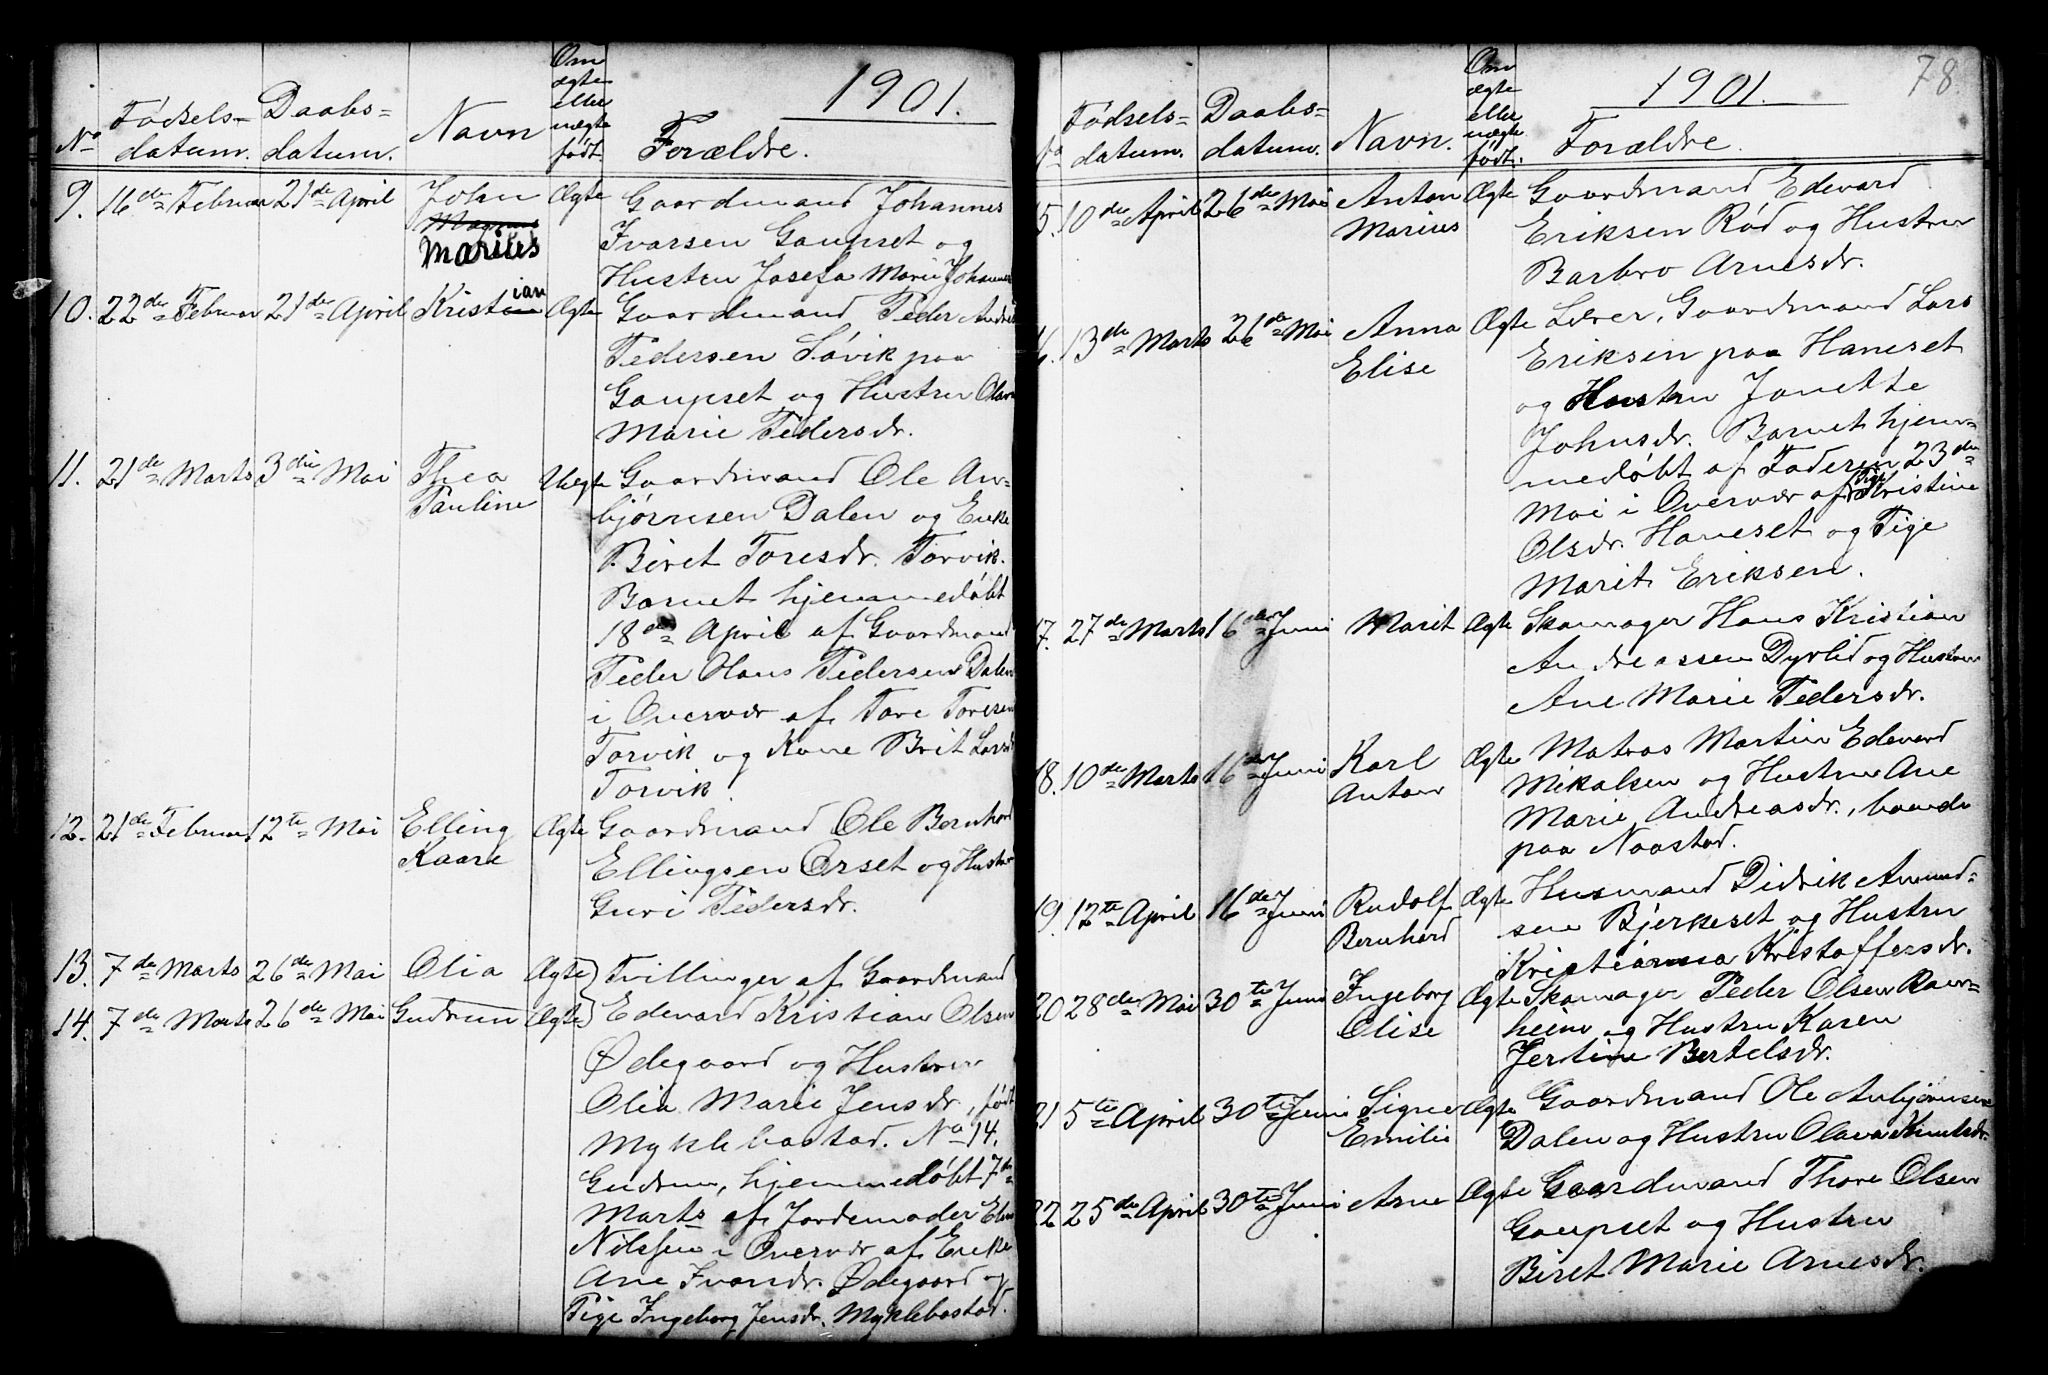 1901.
No Fødsels= datum. Daabs= datum. Navn Om ægte eller uægte født. Forældre.
9. 16de Februar 21de April John Ægte Gaardmand Johannes
Magnus Ivarsen Gaupset og
Marius Hustru Josefa Marie Johannes
10. 22de Februar 21de April Kristian Ægte Gaardmand Peder Andreas
Pedersen Løvik paa
Gaupset og Hustru Olava
Marie Pedersdr.
11. 21de Marts 3die Mai Thea Uægte Gaardmand Ole An=
Pauline bjørnsen Dalen og Enke
Beret Toresdr. Torvik.
Barnet hjemmedøbt
18de April af Gaardmand
Peder Hans Pedersen Dalen
i Overvær af Tore Toresen
Torvik og Kone Brit Larsdr
Torvik.
12. 21de Februar 12te Mai Elling Ægte Gaardmand Ole Bernhard
Kaare Ellingsen Orset og Hustru
Guri Pedersdr.
13. 7de Marts 26de Mai Olia Ægte) Tvillinger af Gaardmand
14. 7de Marts 26de Mai Gudrun Ægte) Edevard Kristian Olsen
Ødegaard og Hustru
Olia Marie Jensdr., født
Myklebostad. No 14.
Gudrun, hjemmedøbt 7de
Marts af Jordemoder Elen
Nilssen i Overvær af Enke
Ane Ivarsdr. Ødegaard og
Pige Ingeborg Jensdr. Myklebostad.
78.
1901.
No Fødsels= datum. Daabs= datum. Navn. Om ægte eller uægte født. Forældre.
15. 10de April 26de Mai Anton Ægte Gaardmand Edevard
Marius Eriksen Rød og Hustru
Barbro Arnesdr.
16. 13de Marts 26de Mai Anna Ægte Lærer, Gaardmand Lars
Elise Eriksen paa Haneset
og Hustru Janette
Johnsdr. Barnet hjem=
medøbt af Faderen 23de
Mai i Overvær af Pige Kristine
Olsdr. Haneset og Pige
Marit Eriksen.
17. 27de Marts 16de Juni Marit Ægte Skomager Hans Kristian
Andreassen Dyrlid og Hustru
Ane Marie Pedersdr.
18. 10de Marts 16de Juni Karl Ægte Matros Martin Edevard
Anton Mikalsen og Hustru Ane
Marie Andreasdr., boende
paa Naastad.
19. 12te April 16de Juni Rudolf Ægte Husmand Didrik Amund=
Bernhard sen Bjerkeset og Hustru
Kristianna Kristoffersdr.
20 28de Mai 30te Juni Ingeborg Ægte Skomager Peder Olsen Raun=
Olise heim og Hustru Karen
Jertine Bertelsdr.
21 5te April 30te Juni Signe Ægte Gaardmand Ole Anbjørnsen
Emilie Dalen og Hustru Olava Knutsdr.
22 25de April 30te Juni Arne Ægte Gaardmand Thore Olsen
Gaupset og Hustru
Beret Marie Arnesdr.